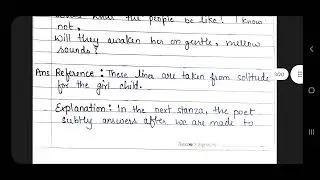 the people be like! I know
not,
Will they awaken her on gentle, mellow
sounds?
Ans Reference: These lines are taken from solitude
for the girl child.
Explanation: In the next stanza, the poet
subtly answers after we are made to